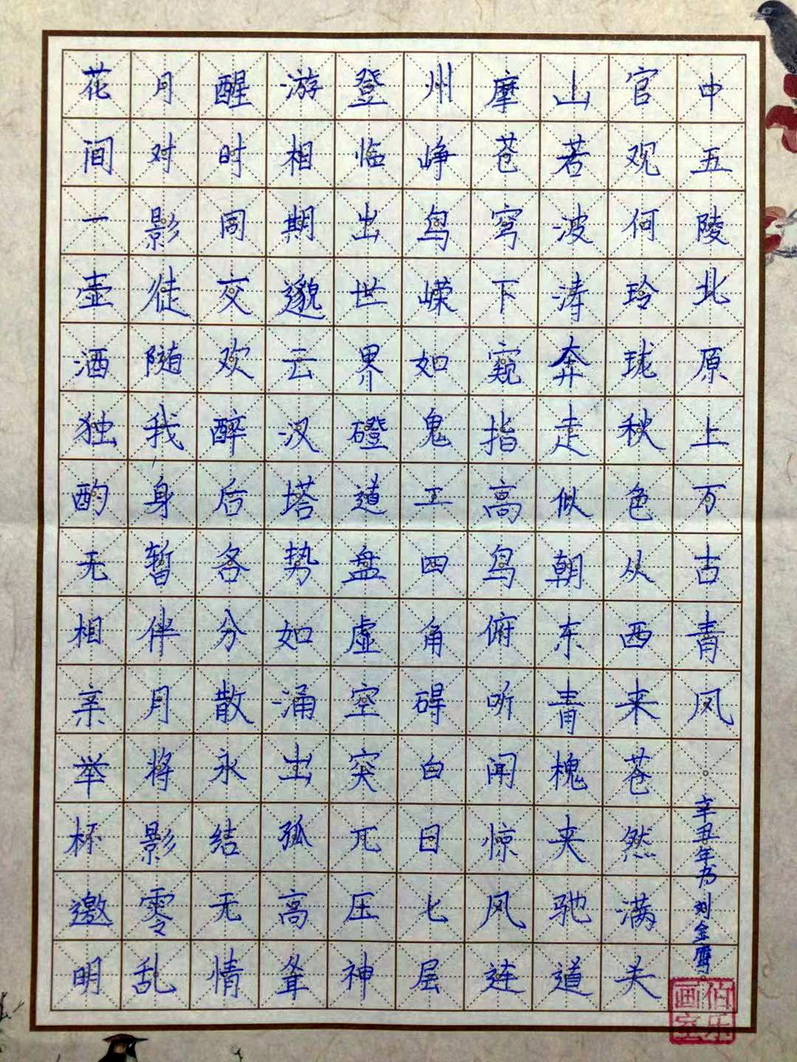 花间一壶酒独酌无相亲举杯邀明
月对影徒随我身暂伴月将影零乱
醒时同交欢醉后各分散永结无情
游相期邈云汉塔势如涌出孤高耸
登临出世界磴道盘虚空突兀压神
州峥鸟嵘如鬼工四角碍白日七层
摩苍穹下窥指高鸟俯听闻惊风连
山若波涛奔走似朝东青槐夹驰道
官观何玲珑秋色从西来苍然满关
中五陵北原上万古青风。
辛丑年 刘金
伯乐画室